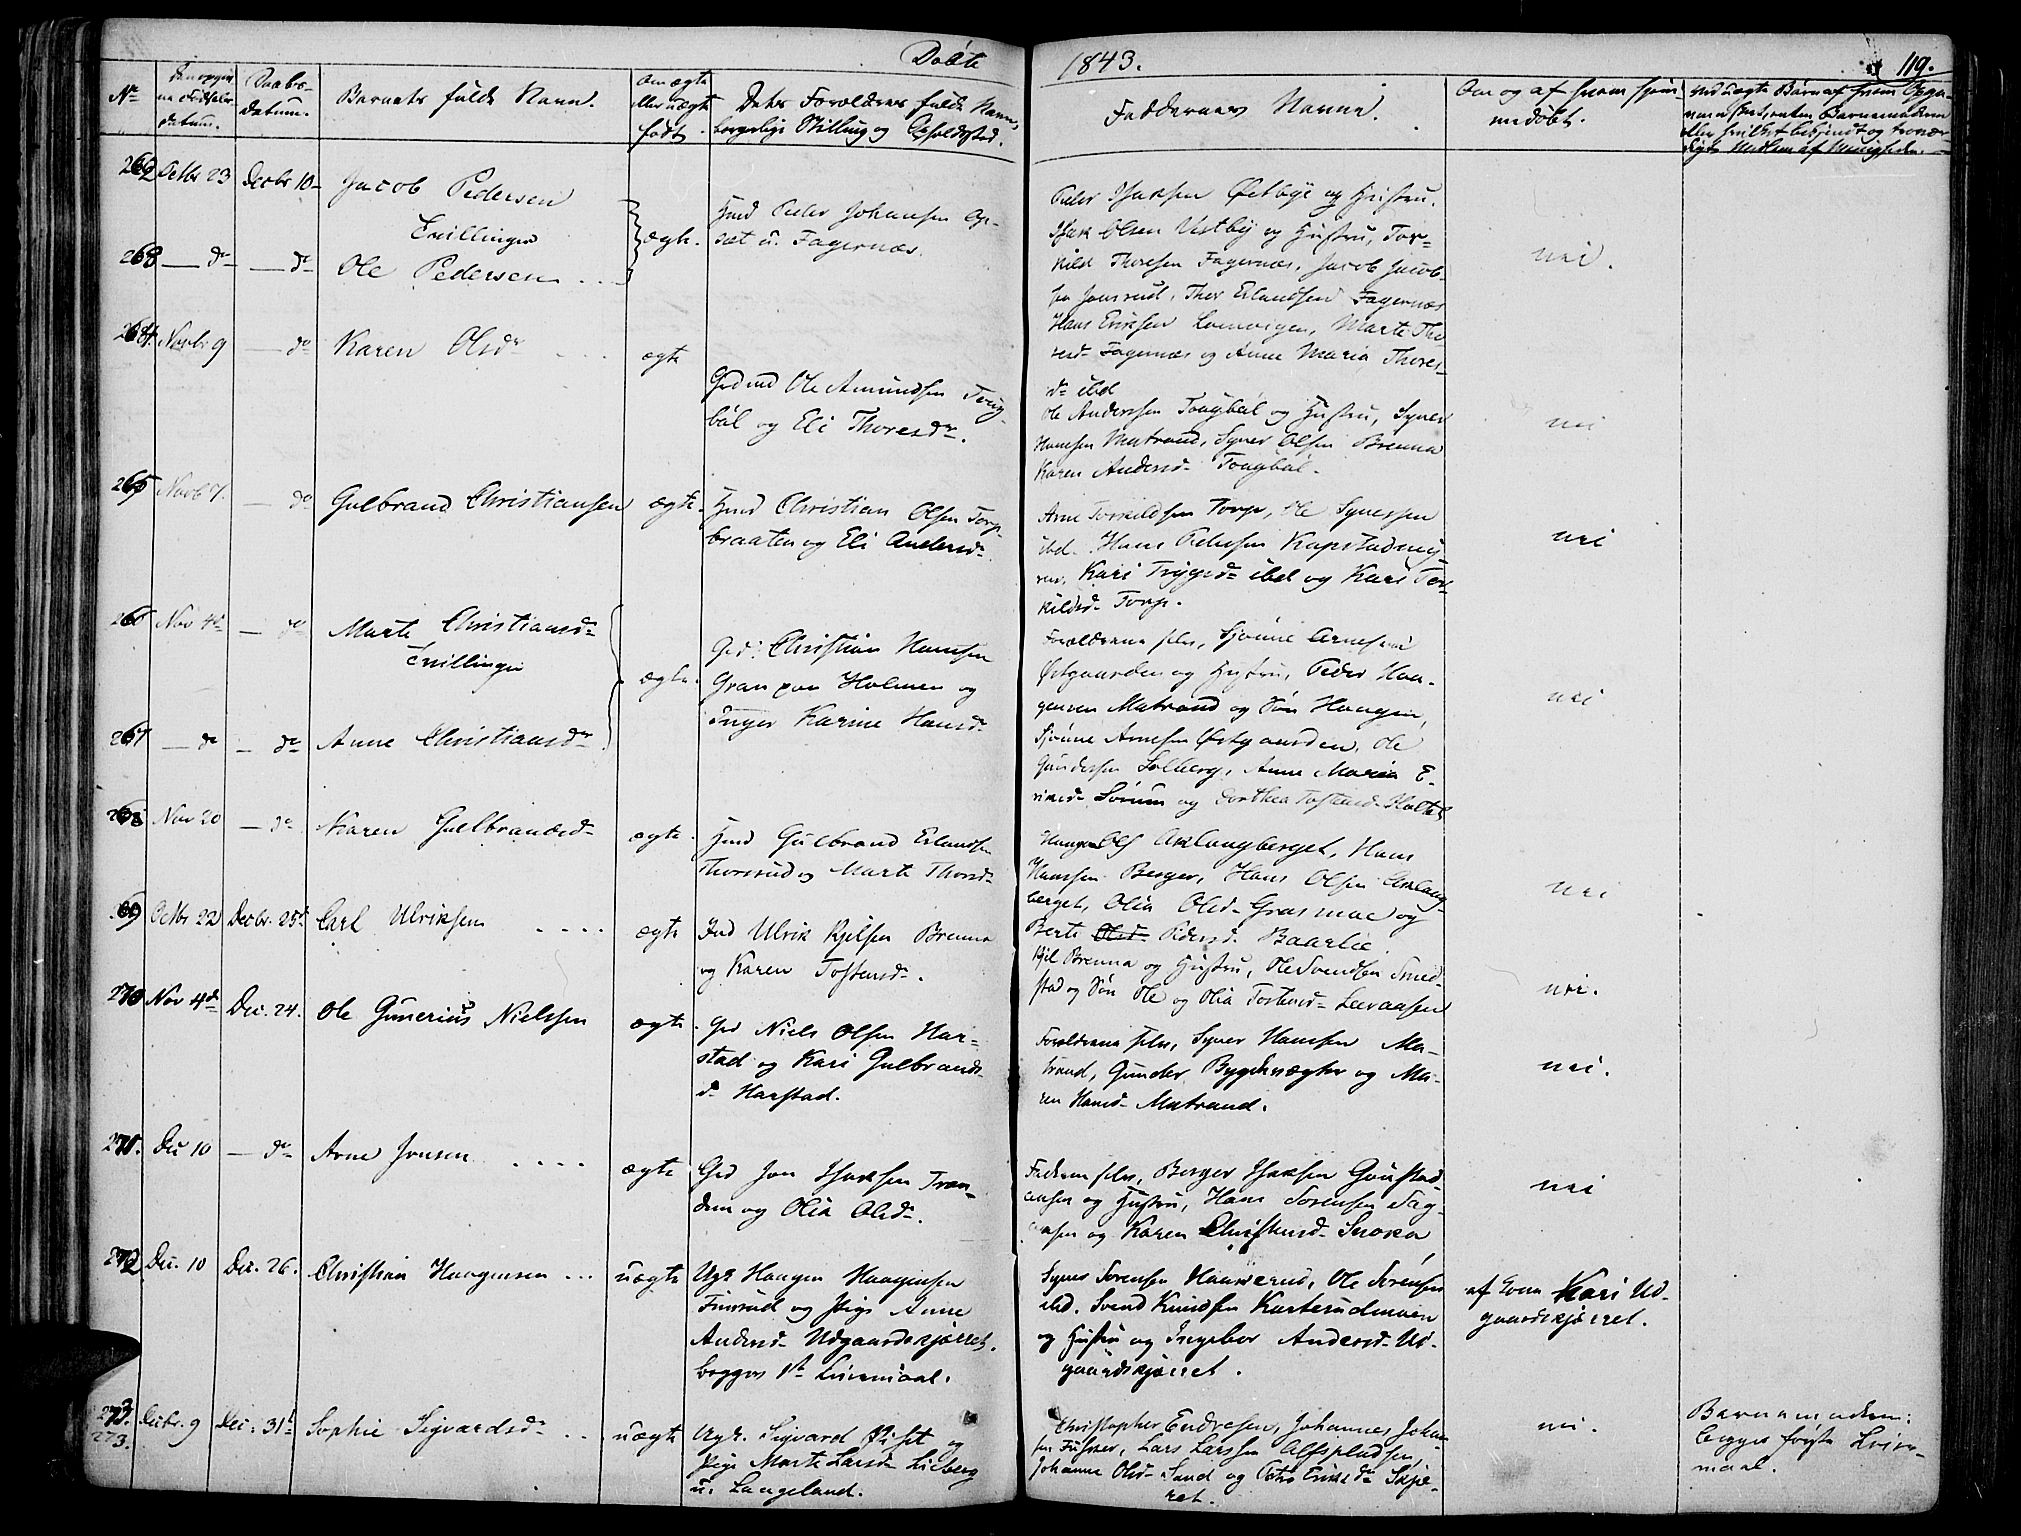 Døbte 1843. 119.
No
Daabs-
datum.
Barnets fulde Navn.
Om ægte
eller uægte
født.
Dets Forældres fulde Navn,
borgerlige Stilling og Opholdssted.
Faddernes Navne.
Om og af hvem hjem-
medøbt.
262 Octbr 23 Decbr 10 Jacob Pedersen
Tvillinger
263 do do Ole Pedersen
ægte.
Hmd Peder Johansen Op-
sæt u. Fagernæs.
Peder Isaksen Østbye og Hustru.
Isak Olsen Vestby og Hustru, Tor-
kild Thoresen Fagernæs, Jacob Jacob-
Thor Erlandsen Fagernæs
Hans Eriksen Lomvigen, Marte Tho
resd. Fagernæs og Anne Maria Thores-
dr ibd
nei.
264. Novbr 9 do Karen Olsdr
ægte
Grdmd Ole Amundsen Toug-
bøl og Eli Thoresdr.
Ole Anderssen Tougbøl og Hustru, Syver
Hansen Matrand, Syver Olsen Brenna
Karen Andersd. Tougbøl.
nei
265 Novb 7. do Gulbrand Christiansen
ægte.
Hmd Christian Olsen Torp-
braaten og Eli Andersdr
Arne Torkildsen Torp, Ole Syverssen
ibd. Hans Pedersen Kapstadmy-
ren, Kari Trygsdr ibd og Kari Tor-
kildsd. Torp.
nei
266 Nov 4d do Marte Christiansd.
Tvillinger
267 do do Anne Christiansdr
ægte.
Grd: Christian Hansen
Gran paa Holmen og
Inger Karine Hansd.
Forældrene selv, Sjønne Arnesen
Østgaarden og Hustru, Peder Haa-
gensen Matrand og Søn Haagen,
Sjønne Arnesen Østgaarden, Ole
Gundersen Solberg, Anne Maria E-
riksd. Sorum og Dorthea Tostensd.
nei
268 Nov 20 do Karen Gulbrandsd.
ægte.
Hmd Gulbrand Erlandsen
Thorsrud og Marte Thorsd.
Haagen Ols Aklangberget, Hans
Hanssen Berger, Hans Olsen Aklang-
berget, Olia Olsd. Grasmoe og
Berte Olsd. Pedersd. Baarlie
nei
69 Octbr 22 Decbr. 25d Carl Ulriksen
ægte
Ind Ulrik Kjelsen Brenna
og Karen Tostensdr.
Kjel Brenna og Hustru, Ole Svendsen Smed-
stad og Søn Ole og Olia Tostensd. Leeraasen
nei.
270 Nov 4de Dec. 24. Ole Gunerius Nielssen
ægte.
Grd Niels Olsen Har-
stad og Kari Gulbrands-
dr Harstad.
Forældrene selv, Syver Hansen Ma-
trand, Gunder Bygdevægter og Ma-
ren Hansd. Matrand.
nei.
271. Dec 10 do Arne Jonsen
ægte
Grd Jon Isaksen Tran-
dem og Olia Olsd.
Faderen selv, Berger Isaksen Gaustad-
aasen og Hustru, Hans Sorensen Sag-
aasen og Karen Christensd. Snora
nei
272 Dec. 10 Dec. 26. Christian Haagensen
uægte
Ugk. Haagen Haagensen
Finsrud og Pige Anne
Andersd. Udgaardskjærret.
begges 1ste Leiermaal.
Syver Sorensen Haaverud, Ole Sorensen
ibd. Svend Knudsen Karterudmoen
og Hustru og Ingebor Andersd. Ud-
gaardskjærret.
af Kona Kari Ud-
gaardskjærret.
273.
273. Decbr. 9 Dec: 31d Sophie Sigvardsdr
uægte
Ugk. Sigvard og
Pige Marte Larsd. Lieberg
u. Langeland.
Christopher Endresen, Johannes Johan-
sen Fuhser, Lars Larssen Alfspladsen,
Johanne Olsd. Sand og Petro Eriksdr Skjæ-
ret.
nei.
Barnemoderen:
begges første Leier-
maal.